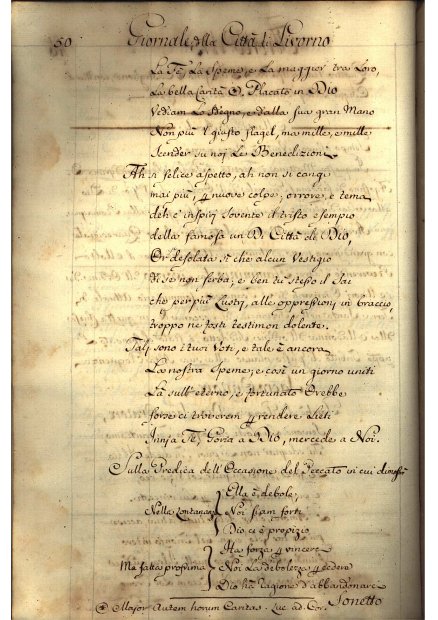 50 Giornale della Città di Livorno
La Fè, La Speme, e La maggior tra Loro,
La bella Carità ⊛, Placato in Dio
Vediam Lo Sdegno, e dalla sua gran Mano
Non più l' giusto flagel, ma mille, e mille
Scender su noj Le Benedizioni
Ah sì felice aspetto, ah non si cangi
mai più, nuove colpe, orrore, e tema
deh c' inspirj sovente il tristo esempio
della famosa un Dì Città di Dio,
Or desolata sì che alcun Vestigio
Di se non serba; e ben tu stesso il Sai
che per più Lustrj, alle oppressionj in braccio,
troppo ne festi testimon dolente.
Talj sono i tuoi Voti, e tale è ancora
La nostra Speme; e così un giorno uniti
La sull' eterno, e fortunato
forse ci troverem rendere Lieti
a Dio, mercede a Noi.
Sulla Predica dell' Occasione del Peccato in cui
Ella è debole;
Nella Lontananza Noi siam forti
Dio ci è propizio
Ha forza vincere
Ma fatta prossima Noi La debolezza cedere
Dio ha ragione d'abbandonarci
Sonetto
⊛ Major Autem horum Caritas. ad Cor.